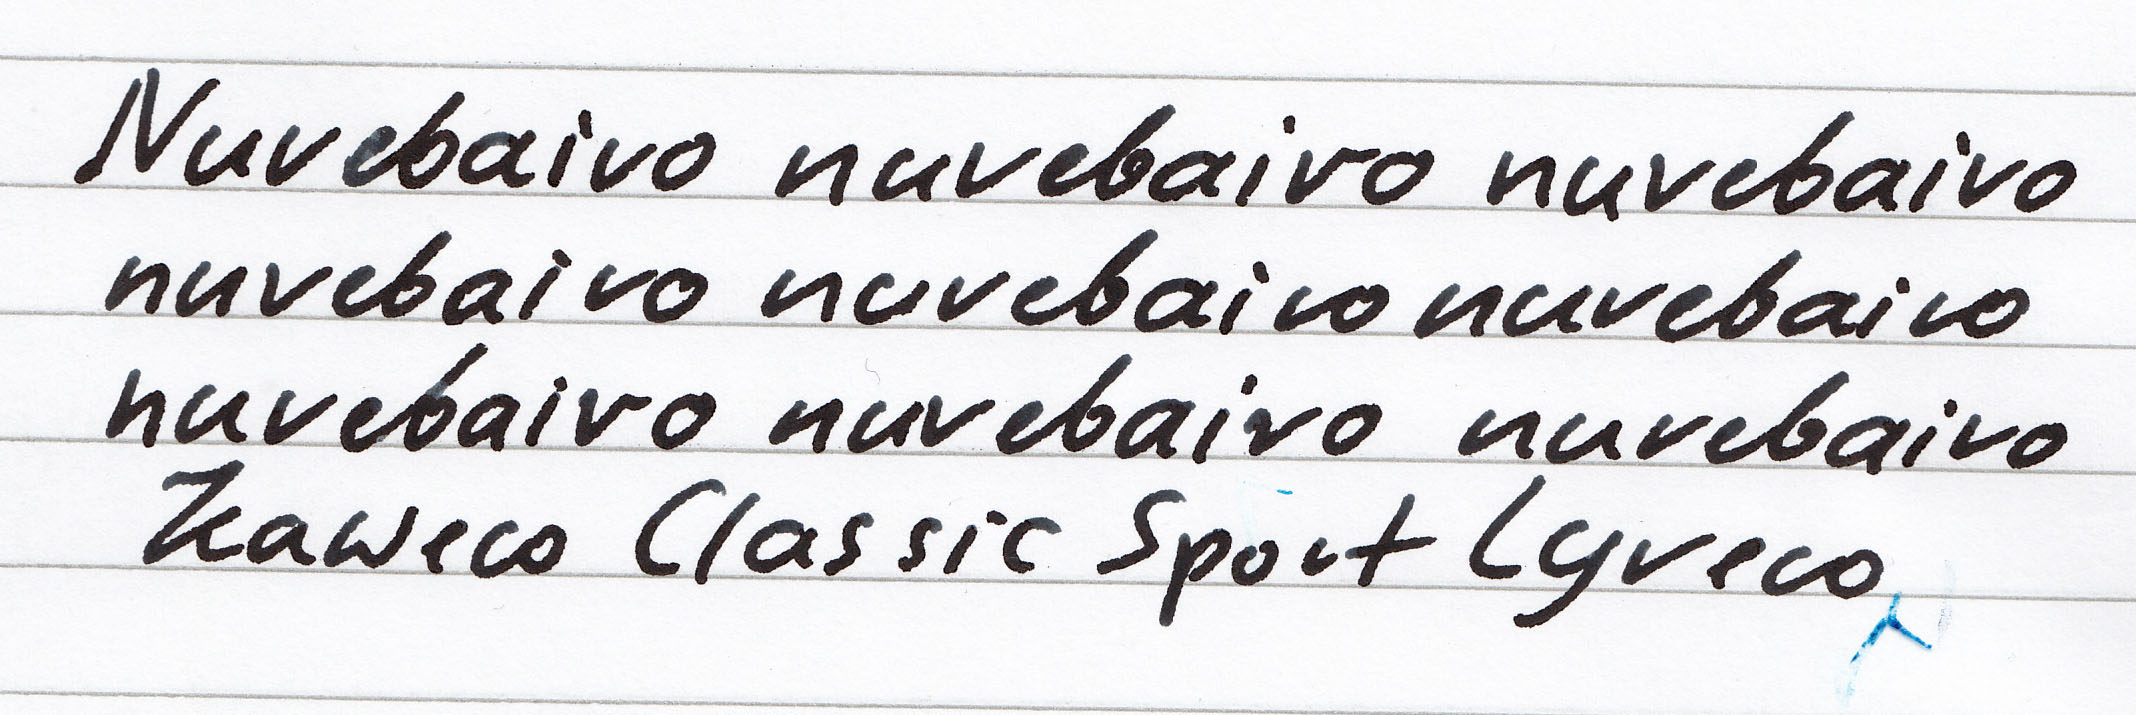 Nuvebaivo nuvebaivo nuvebaivo
nuvebaivo nuvebaivo nuvebaivo
nuvebaivo nuvebaivo nuvebaivo
Kaweco Classic Sport Lyreco